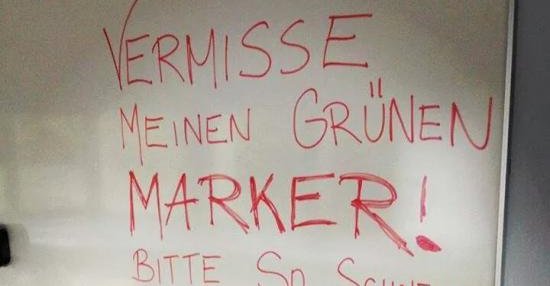 VERMISSE
MEINEN GRÜNEN
MARKER!
BITTE SO